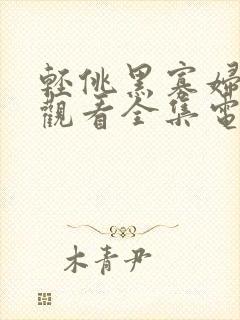 輕佻黑寡婦
觀看全集電
木青尹